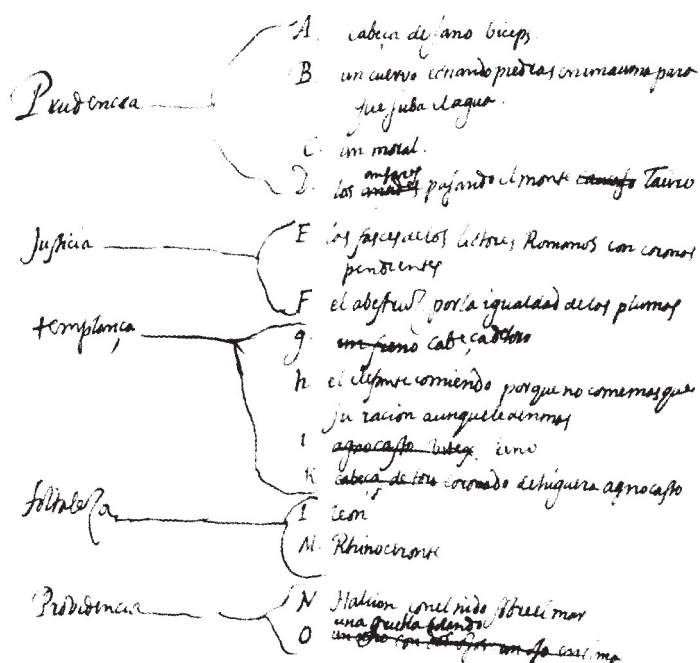 Prudencia
A. cabeça de Jano biceps.
B. un cuervo echando piedras en una urna para
que suba el agua.
C un moral.
D. los ansares pasando el monte Tauro
Justicia
E las fasces de los lictores Romanos con coronas
pendientes
F el abestruz por la igualdad de las plumas
templança
g. un freno cabeça de toro
h el elefante comiendo porque no come mas que
su ración aunque le den mas
I agnocasto
K cabeça de toro coronado de higuera agnocasto
fortaleza
I León
M. Rhinoceronte
Providencia
N Halcion con el nido sobre el mar
O una